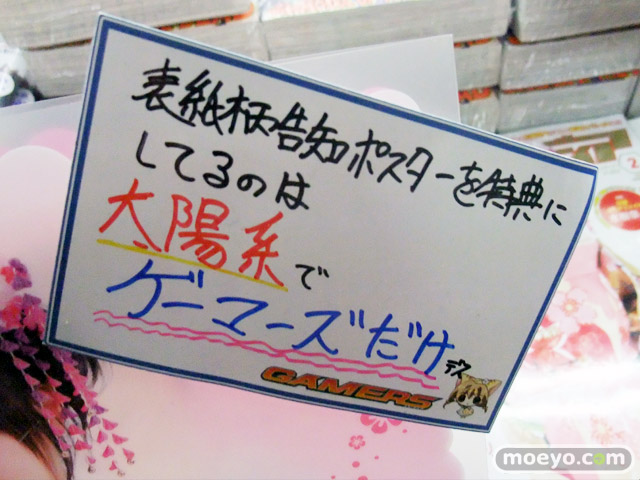 表紙柄告知ポスターを特典に
してるのは
太陽系で
ゲーマーズだけ
デス
GAMERS
moeyo.com